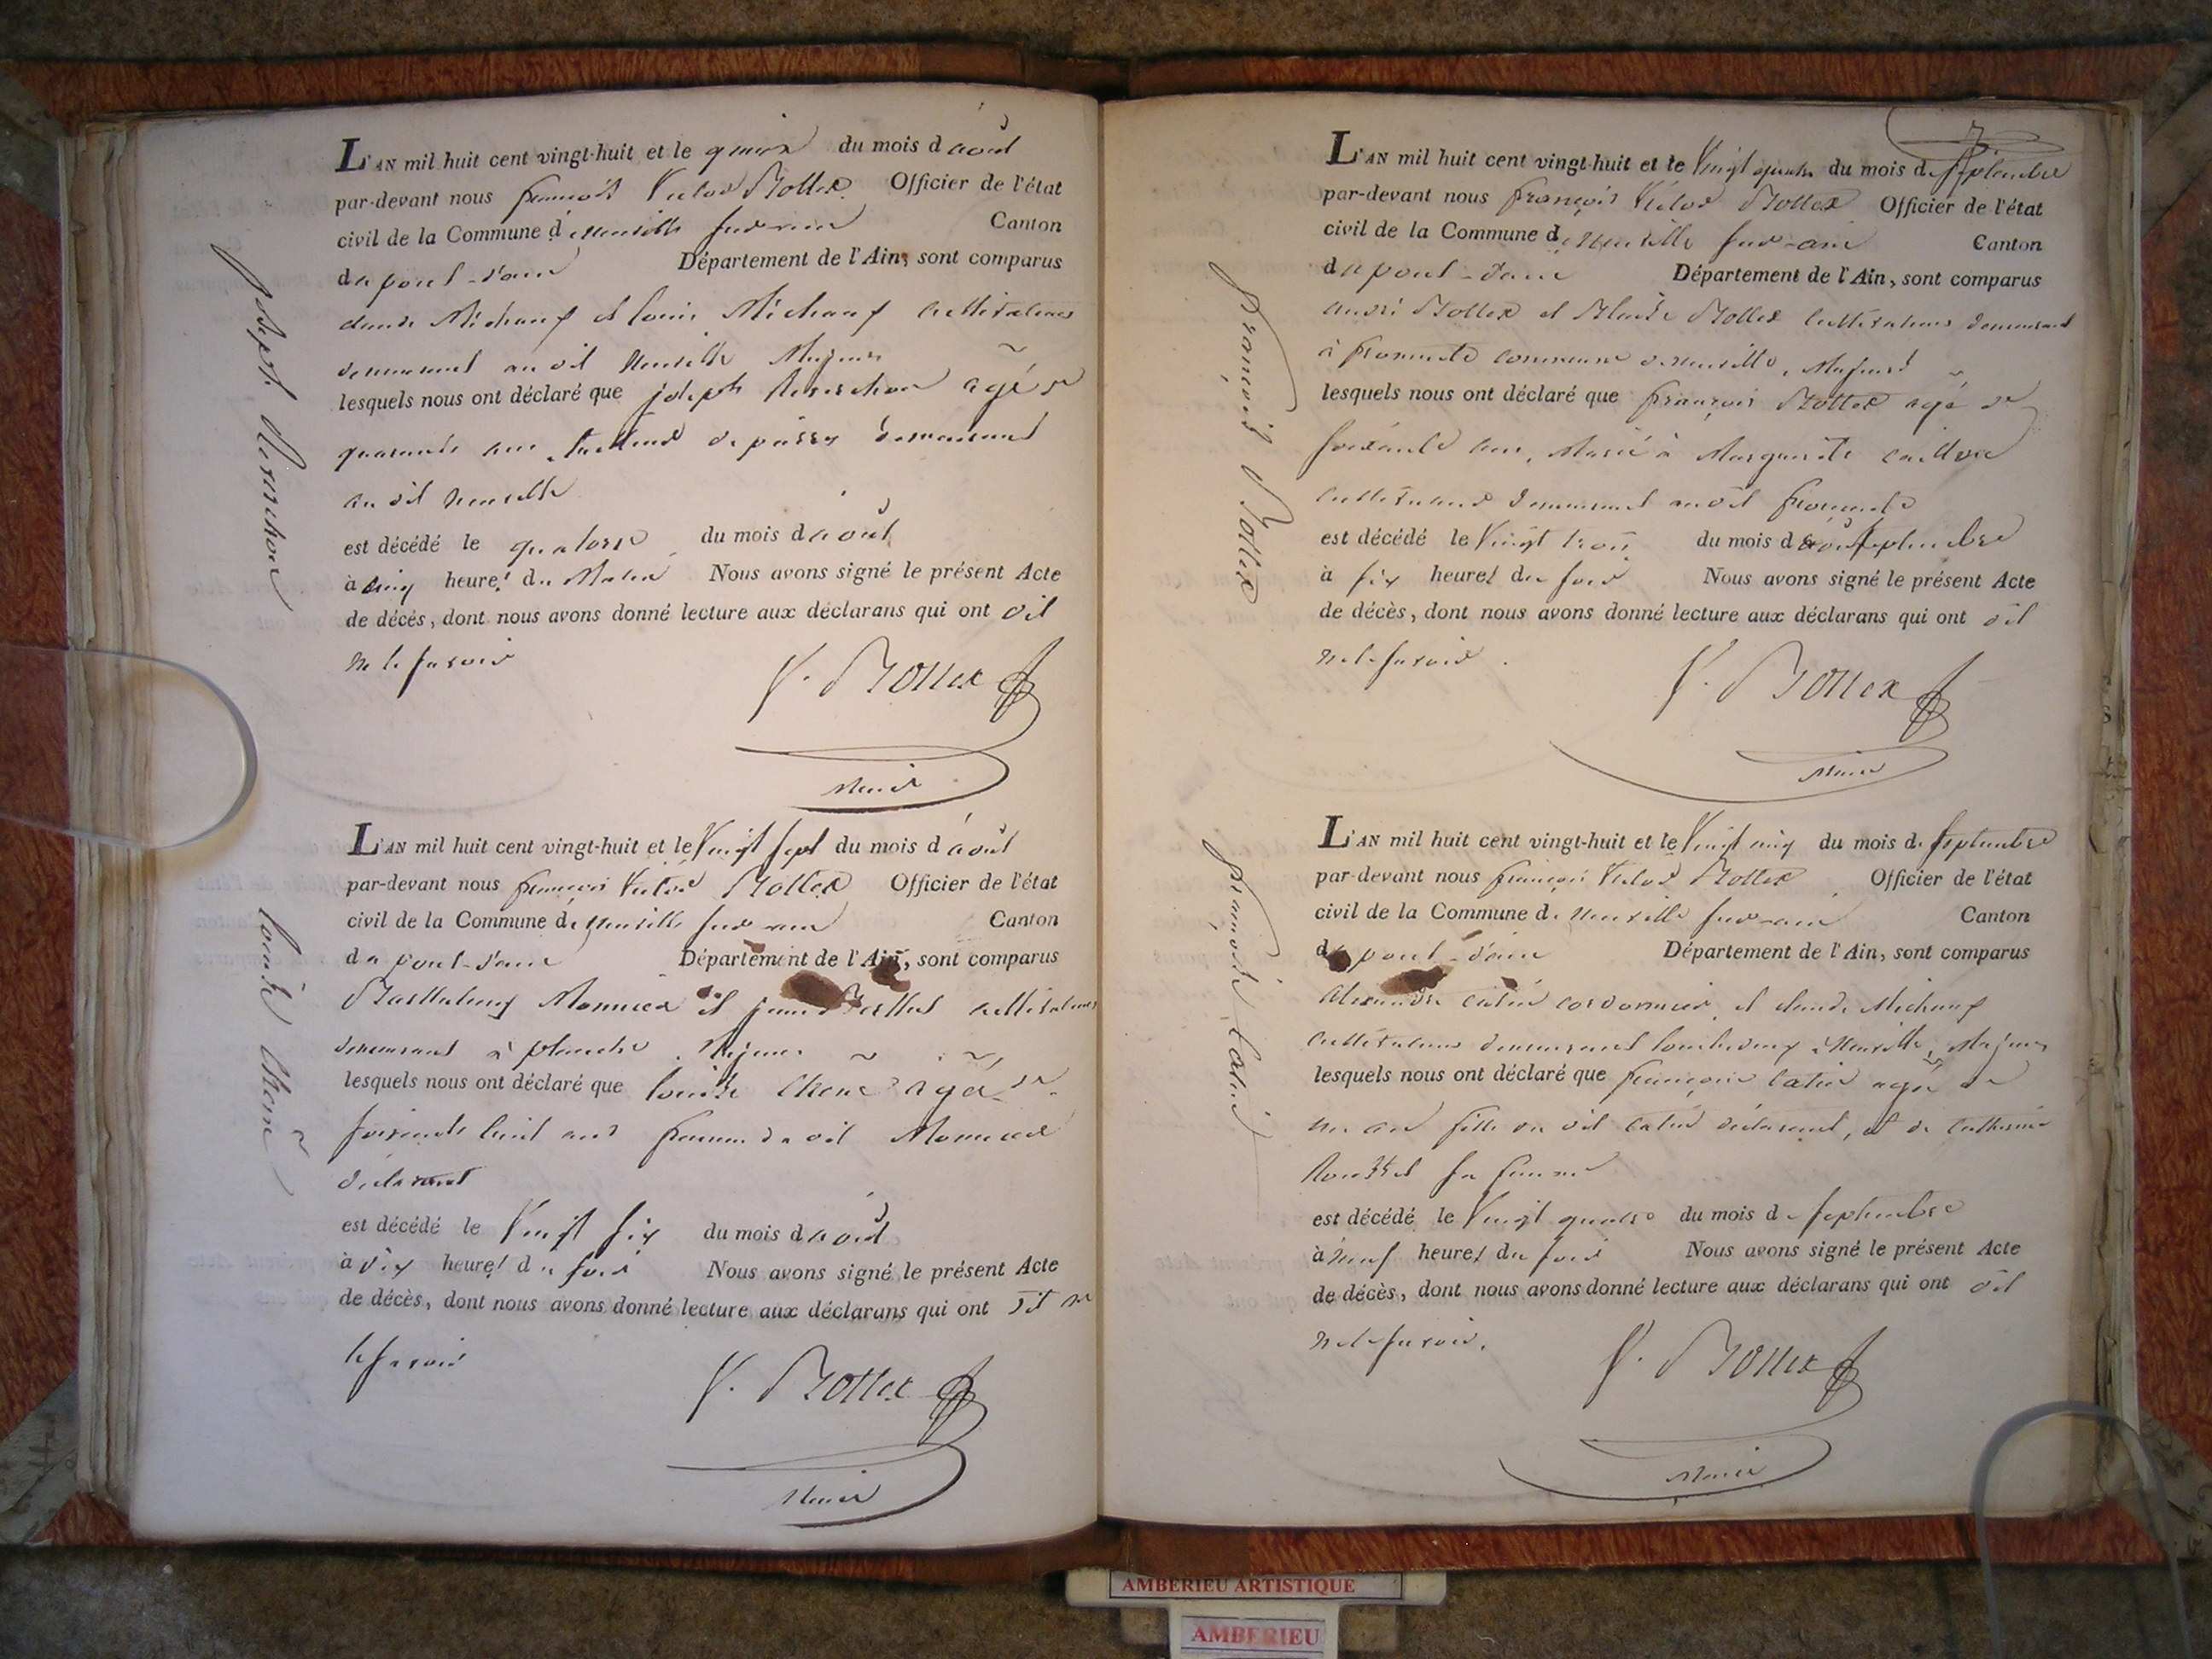 L'AN mil huit cent vingt-huit et le quinze du mois d'août
par-devant nous françois Victor Bottex Officier de l'état
civil de la Commune de neuville sur ain Canton
du pont-d'ain Département de l'Ain, sont comparus
claude Michaux et louis Michaux cultivateurs
demeurant au dit neuville Majeurs
lesquels nous ont déclaré que joseph agé de
quarante ans demeurant
au dit neuville
est décédé le quatorze du mois d'août
à cinq heures du Matin Nous avons signé le présent Acte
de décès, dont nous avons donné lecture aux déclarans qui ont dit
ne le savoir
V. Bottex
Maire
joseph
L'AN mil huit cent vingt-huit et le Vingt sept du mois d'août
par-devant nous françois Victor Bottex Officier de l'état
civil de la Commune de neuville sur ain Canton
du pont-d'ain Département de l'Ain, sont comparus
Barthelemy Monnier et cultivateurs
demeurant à planche Majeurs
lesquels nous ont déclaré que louise Chene agée de
soixante huit ans femme du dit Monnier
déclarant
est décédé le Vingt six du mois d'août
à dix heures du soir Nous avons signé le présent Acte
de décès, dont nous avons donné lecture aux déclarans qui ont dit ne
le savoir
V. Bottex
Maire
louise Chene
7
L'AN mil huit cent vingt-huit et le Vingt quatre du mois de septembre
par-devant nous françois Victor Bottex Officier de l'état
civil de la Commune de neuville sur-ain Canton
du pont-d'ain Département de l'Ain, sont comparus
andré Bottex et Blaise Bottex cultivateurs demeurant
à fromente commune de neuville, Majeurs
lesquels nous ont déclaré que françois Bottex agé de
soixante ans, Marié à Marguerite
cultivateur demeurant audit fromente
est décédé le Vingt trois du mois de septembre
à six heures du soir Nous avons signé le présent Acte
de décès, dont nous avons donné lecture aux déclarans qui ont dit
ne le savoir.
V. Bottex
Maire
françois Bottex
L'AN mil huit cent vingt-huit et le Vingt cinq du mois de septembre
par-devant nous françois Victor Bottex Officier de l'état
civil de la Commune de neuville sur-ain Canton
du pont-d'ain Département de l'Ain, sont comparus
alexandre catin cordonnier, et claude Michaux
cultivateur demeurant à Neuville, Majeurs
lesquels nous ont déclaré que françoise catin agée de
un an fille du dit catin déclarant, et de catherine
Roussel sa femme
est décédé le Vingt quatre du mois de septembre
à neuf heures du soir Nous avons signé le présent Acte
de décès, dont nous avons donné lecture aux déclarans qui ont dit
ne le savoir.
V. Bottex
Maire
françoise catin
AMBERIEU ARTISTIQUE
AMBERIEU